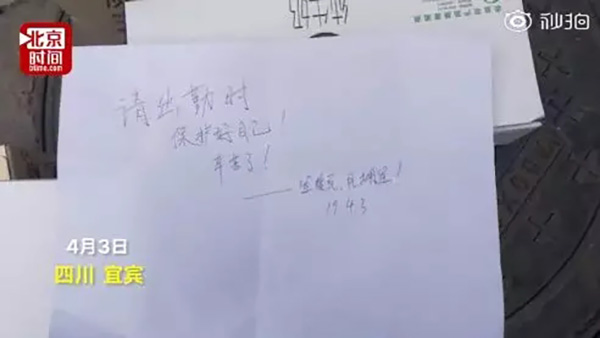 北京
时间
btime.com
秒拍
请出勤时
保护好自己！
辛苦了！
——
19.4.3
4月3日
四川 宜宾